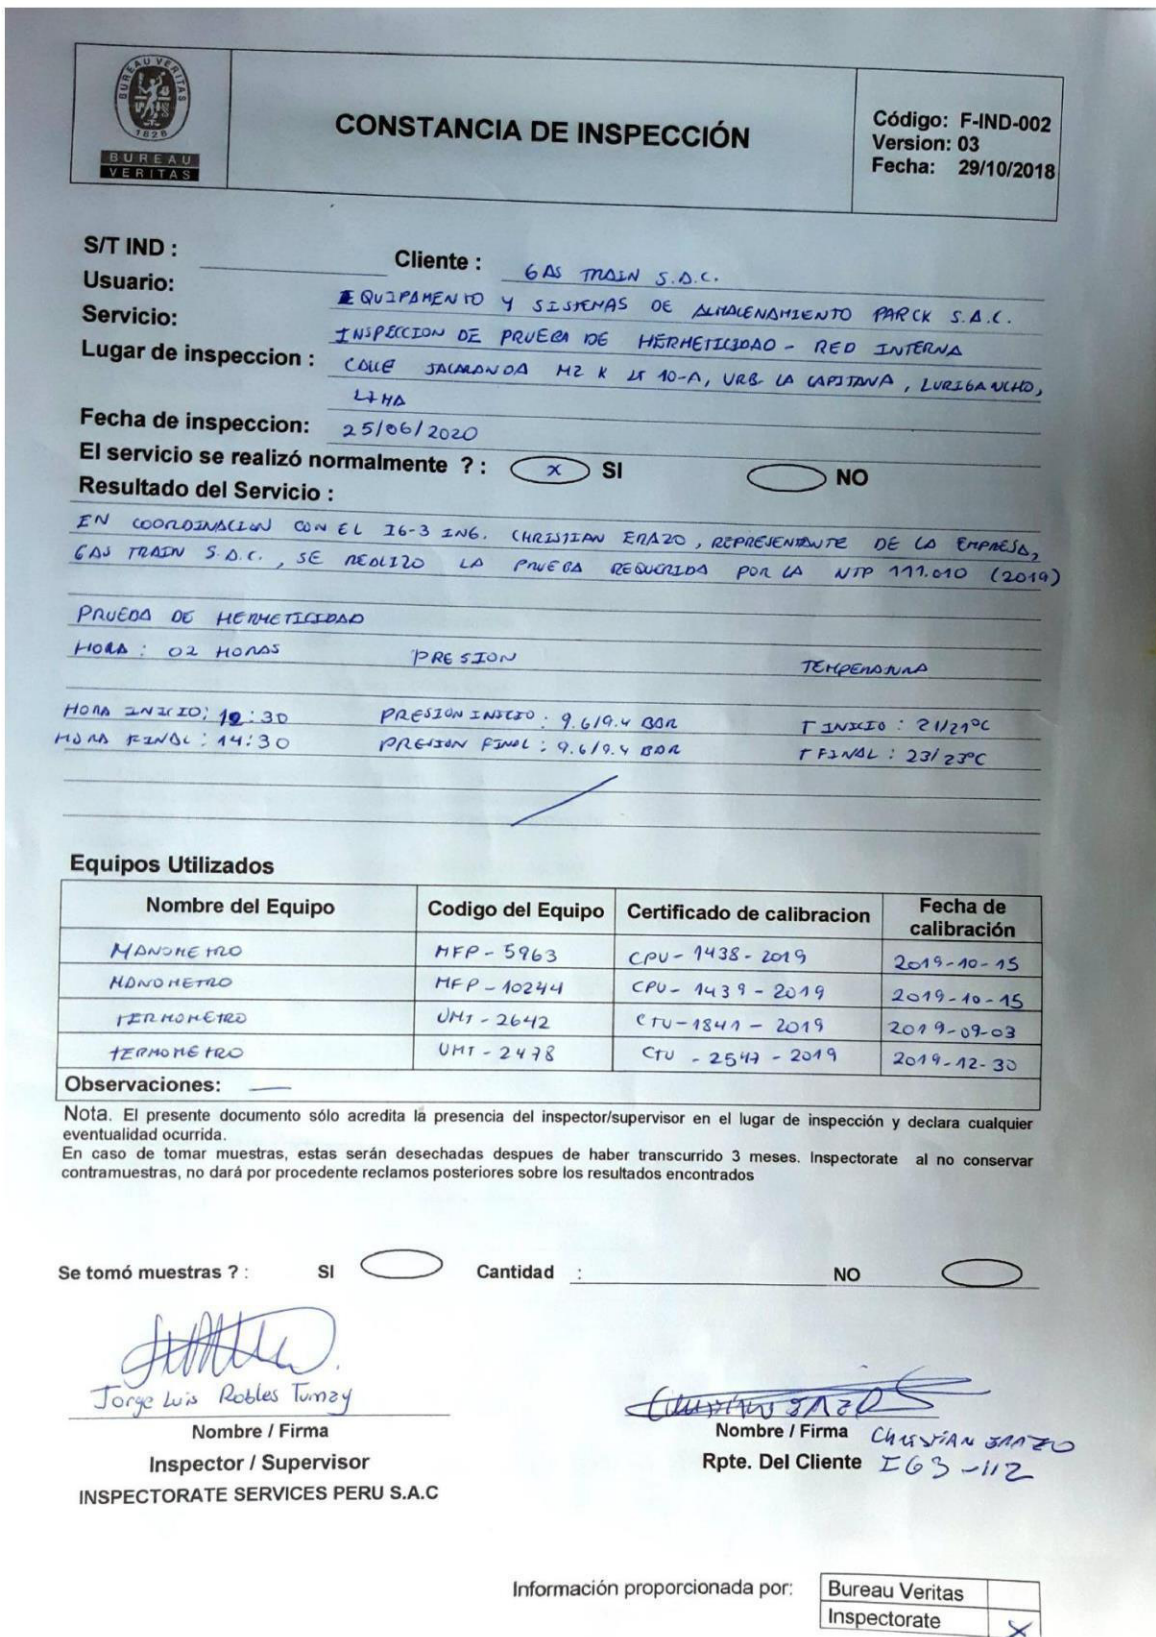 BUREAU VERITAS
1828
BUREAU
VERITAS
CONSTANCIA DE INSPECCIÓN
Código: F-IND-002
Version: 03
Fecha: 29/10/2018
S/T IND :
Cliente : GAS TRAIN S.A.C.
Usuario: EQUIPAMENTO Y SISTEMAS DE ALMACENAMIENTO PARCK S.A.C.
Servicio: INSPECCION DE PRUEBA DE HERMETICIDAD - RED INTERNA
Lugar de inspeccion : CALLE JACARANDA MZ K LT 10-A, URB. LA CAPITANA, LURIGANCHO,
LIMA
Fecha de inspeccion: 25/06/2020
El servicio se realizó normalmente ? : x SI NO
Resultado del Servicio :
EN COORDINACION CON EL IG-3 ING. CHRISTIAN ERAZO, REPRESENTANTE DE LA EMPRESA,
GAS TRAIN S.A.C., SE REALIZO LA PRUEBA REQUERIDA POR LA NTP 111.010 (2019)
PRUEBA DE HERMETICIDAD
HORA : 02 HORAS PRESION TEMPERATURA
HORA INICIO: 12:30 PRESION INICIO : 9.6/9.4 BAR T INICIO : 21/21°C
HORA FINAL : 14:30 PRESION FINAL : 9.6/9.4 BAR T FINAL : 23/23°C
Equipos Utilizados
Nombre del Equipo Codigo del Equipo Certificado de calibracion Fecha de calibración
MANOMETRO MFP - 5963 CPU - 1438 - 2019 2019-10-15
MANOMETRO MFP - 10244 CPU - 1439 - 2019 2019-10-15
TERMOMETRO UMT - 2642 CTU - 1841 - 2019 2019-09-03
TERMOMETRO UMT - 2478 CTU - 2547 - 2019 2019-12-30
Observaciones:
Nota. El presente documento sólo acredita la presencia del inspector/supervisor en el lugar de inspección y declara cualquier
eventualidad ocurrida.
En caso de tomar muestras, estas serán desechadas despues de haber transcurrido 3 meses. Inspectorate al no conservar
contramuestras, no dará por procedente reclamos posteriores sobre los resultados encontrados
Se tomó muestras ? : SI Cantidad : NO
Jorge Luis Robles Tumay
Nombre / Firma
Inspector / Supervisor
INSPECTORATE SERVICES PERU S.A.C
Nombre / Firma CHRISTIAN ERAZO
Rpte. Del Cliente IG3-112
Información proporcionada por: Bureau Veritas
Inspectorate X